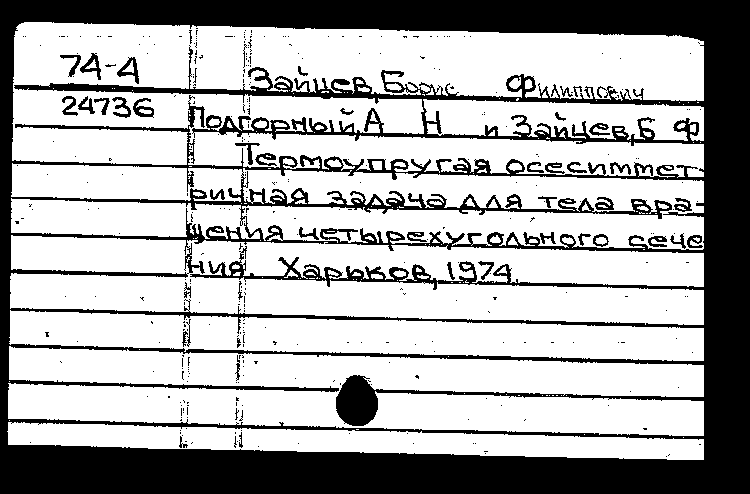 74-4 Зайцев, Борис Филиппович
24736 Подгорный, А Н и Зайцев, Б Ф
Термоупругая осесиммет-
ричная задача для тела вра-
щения четырехугольного сече
ния. Харьков, 1974.